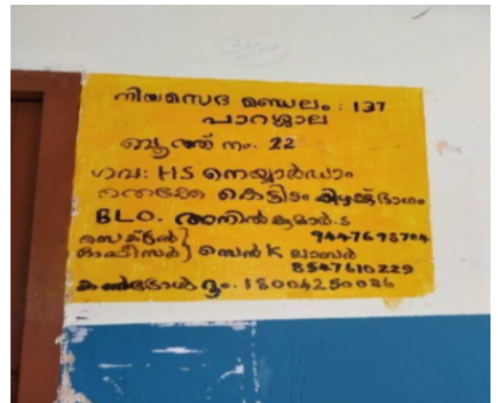 നിയമസഭ മണ്ഡലം : 137
പാറശ്ശാല
ബൂത്ത് നം. 22
ഗവ: HS നെയ്യാർഡാം
തെക്കേ കെട്ടിടം കിഴക്ക് ഭാഗം
BLO. അനിൽകുമാർ.S
9447698704
സെക്ടറൽ
ഓഫീസർ } സെൻ K ലാബർ
8547610229
കൺട്രോൾ റൂം. 18004250086